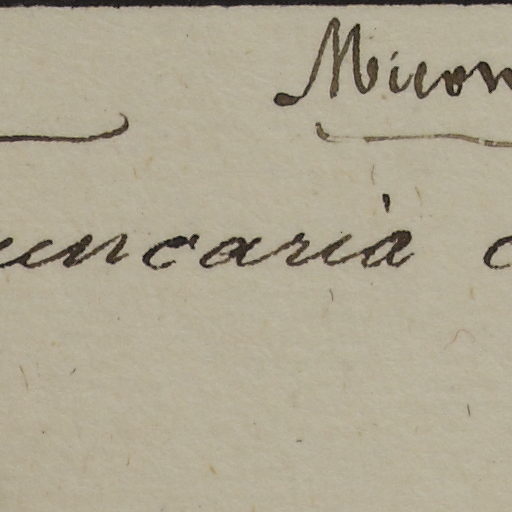 Micon
uncaria c